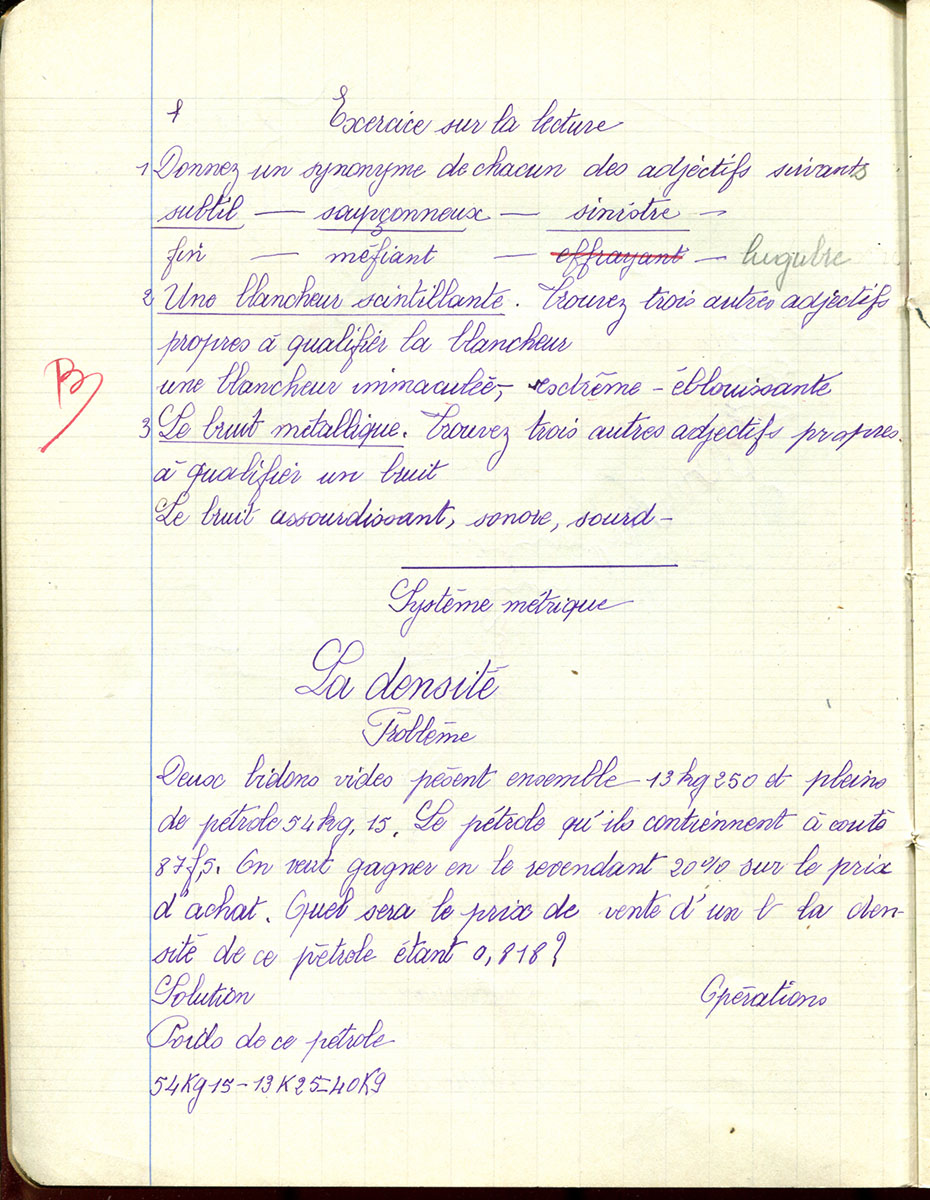 Exercice sur la lecture
1 Donnez un synonyme de chacun des adjéctifs suivants
subtil — soupçonneux — sinistre —
fin — méfiant — effrayant — lugubre
2 Une blancheur scintillante. Trouvez trois autres adjectifs
propres à qualifier la blancheur
une blancheur immaculée, extrême - éblouissante
B
3 Le bruit métallique. Trouvez trois autres adjectifs propres
à qualifier un bruit
Le bruit assourdissant, sonore, sourd -
Système métrique
La densité
Problème
Deux bidons vides pèsent ensemble 13kg250 et pleins
de pétrole 54kg,15. Le pétrole qu'ils contiennent à couté
87f,5. On veut gagner en le revendant 20% sur le prix
d'achat. Quel sera le prix de vente d'un l la den-
sité de ce pétrole étant 0,818?
Solution Opérations
Poids de ce pétrole
54Kg15 - 13K25 = 40K9